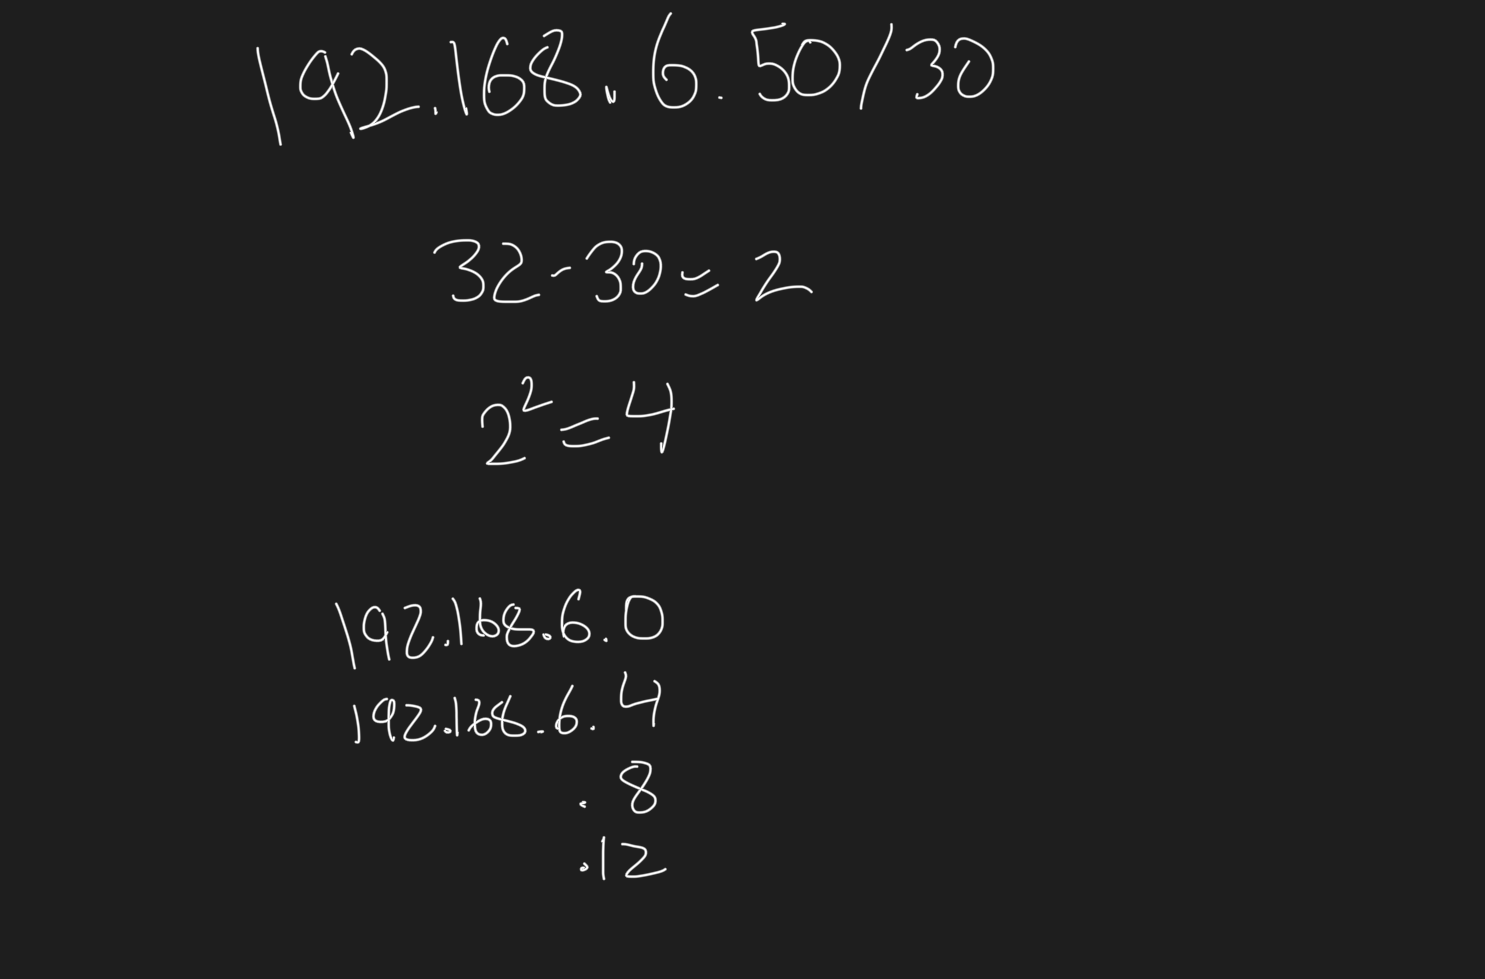 192.168.6.50/30
32-30=2
2²=4
192.168.6.0
192.168.6.4
.8
.12